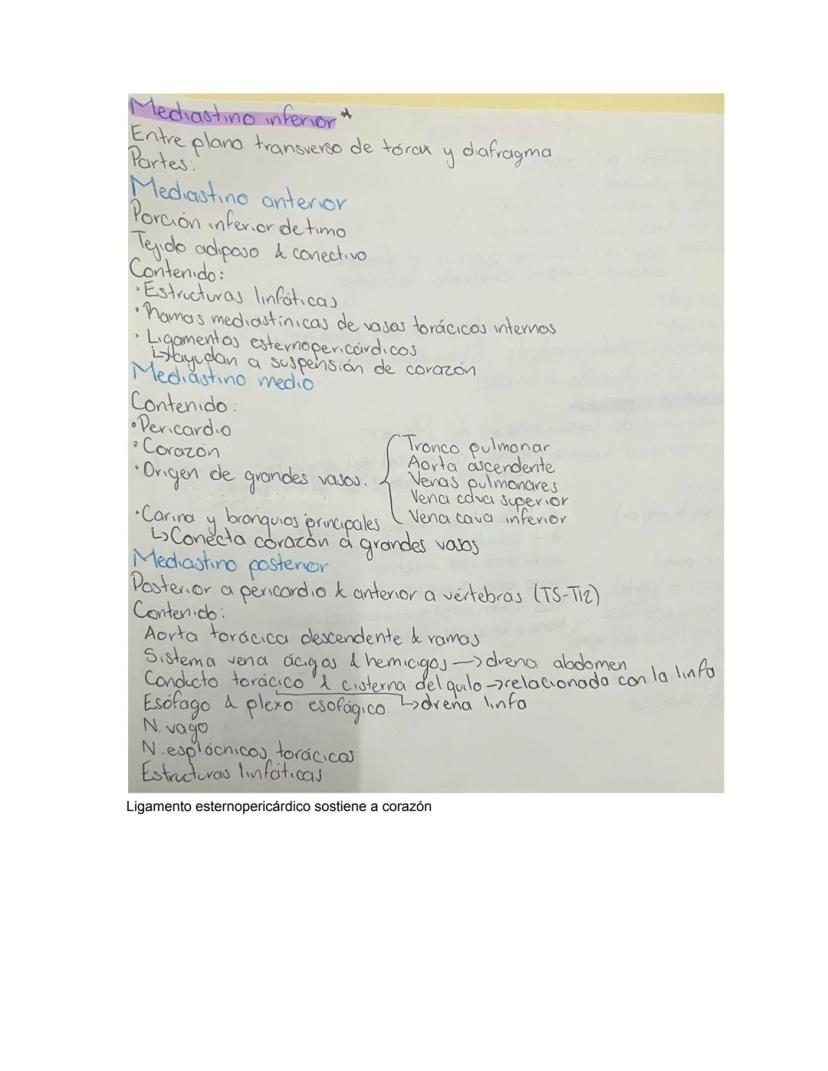 Mediastino inferior*
Entre plano transverso de tórax y diafragma
Partes:
Mediastino anterior
Porción inferior de timo
Tejido adiposo & conectivo
Contenido:
· Estructuras linfáticas
· Ramas mediastínicas de vasos torácicos internos
· Ligamentos esternopericárdicos
↳Ayudan a suspensión de corazón
Mediastino medio
Contenido:
• Pericardio
• Corazón
• Origen de grandes vasos:
Tronco pulmonar
Aorta ascendente
Venas pulmonares
Vena cava superior
Vena cava inferior
· Carina y bronquios principales
↳Conecta corazón a grandes vasos
Mediastino posterior
Posterior a pericardio & anterior a vértebras (T5-T12)
Contenido:
Aorta torácica descendente & ramas
Sistema vena ácigos & hemicigos → drena abdomen
Conducto torácico & cisterna del quilo → relacionada con la linfa
Esófago & plexo esofágico ↳drena linfa
N. vago
N. esplácnicos torácicos
Estructuras linfáticas
Ligamento esternopericárdico sostiene a corazón